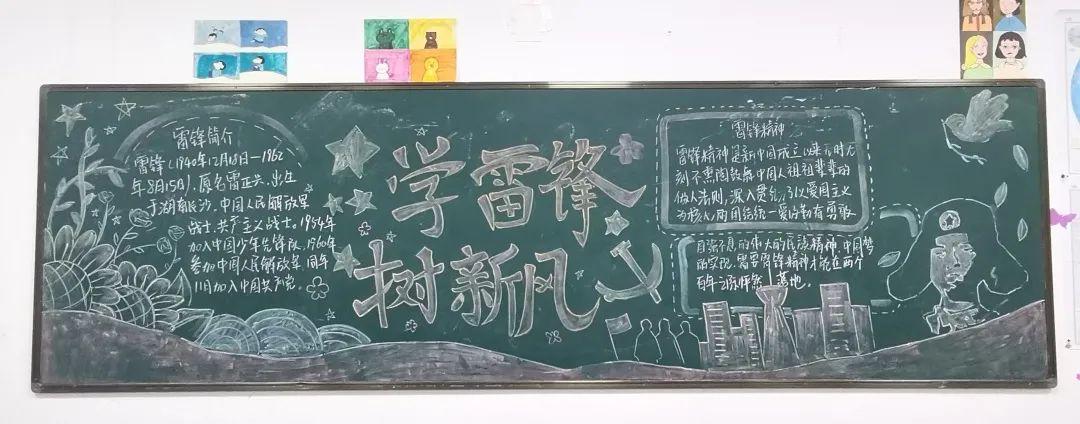 雷锋简介
雷锋（1940年12月18日—1962
年8月15日），原名雷正兴，出生
于湖南长沙，中国人民解放军
战士，共产主义战士。1954年
加入中国少年先锋队，1960年
参加中国人民解放军，同年
11月加入中国共产党。
学雷锋
树新风
雷锋精神
雷锋精神是新中国成立以来
刻不熏陶 中国人祖祖辈辈的
做人法则，深入贯 爱国主义
为核心，团结统一 爱 勤 勇敢
自强不息的伟大的民族精神，中国梦
的实现，需要雷锋精神才能在两个
百年之际 落地。